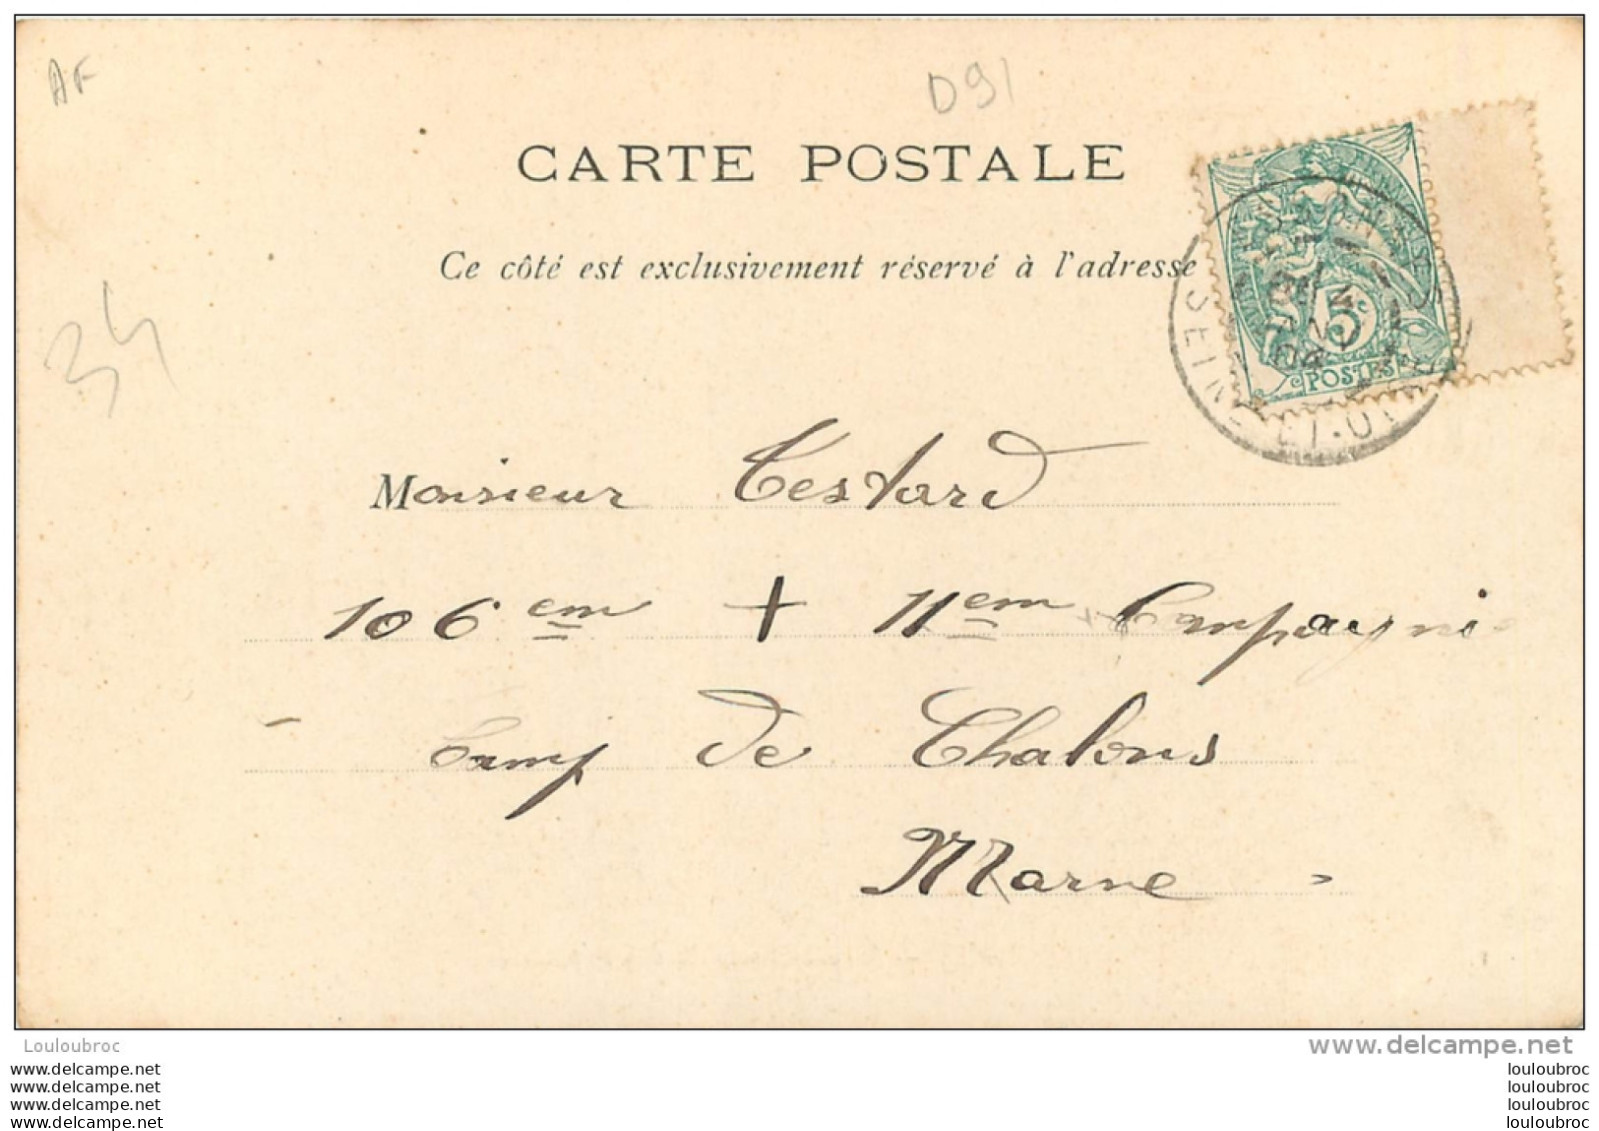 AF
D91
CARTE POSTALE
Ce côté est exclusivement réservé à l'adresse
5c
POSTES
SEINE-ET-OISE
34
Monsieur Testard
106em + 11em Compagni
Camp de Chalons
Marne
Louloubroc
www.delcampe.net
www.delcampe.net
www.delcampe.net
www.delcampe.net
www.delcampe.net
louloubroc
louloubroc
louloubroc
louloubroc